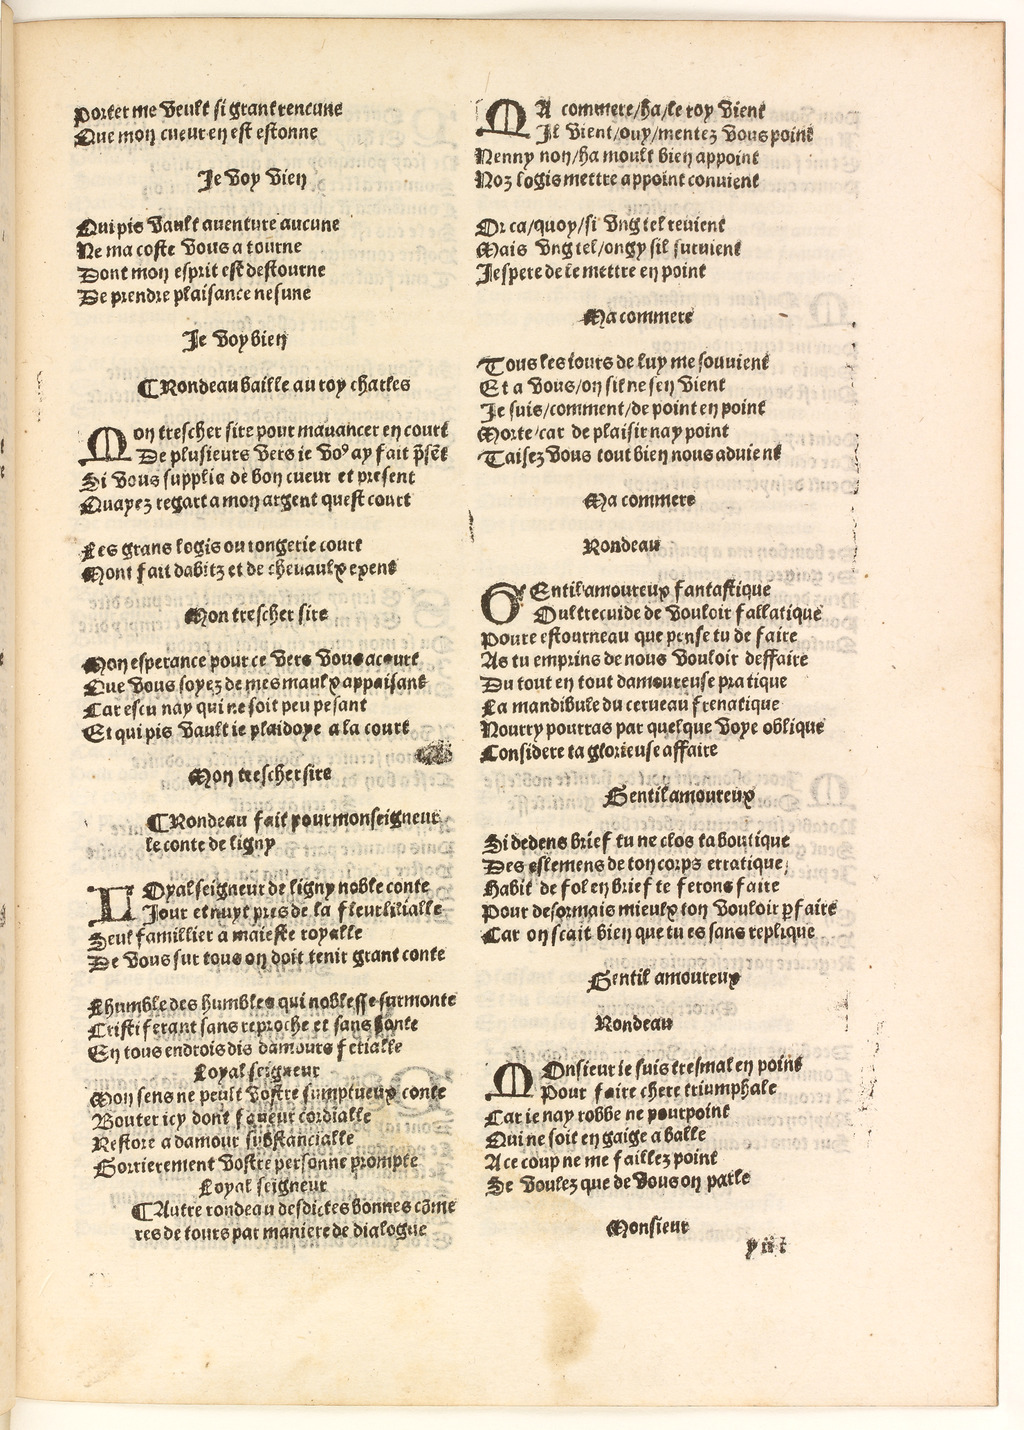 Porter me veult si grant rencune
Que mon cueur en est estonne
Je voy bien
Qui pis vault aventure aucune
Ne ma coste vous a tourne
Dont mon esprit est destourne
De prendre plaisance nesune
Je voy bien
¶ Rondeau baille au roy charles
Mon trescher sire pour mavancer en court
De plusieurs vers ie voꝰ ay fait p̃sẽt
Si vous supplie de bon cueur et present
Quayez regart a mon argent quest court
Les grans logis ou rongerie court
Mont fait dabitz et de chevaulx exent
Mon trescher sire
Mon esperance pour ce vers vous acourt
Que vous soyez de mes maulx appaisant
Car escu nay qui ne soit peu pesant
Et qui pis vault ie plaidoye a la court
Mon trescher sire
¶ Rondeau fait pour monseigneur
le conte de ligny
Loyal seigneur de ligny noble conte
Jour et nuyt pres de la fleur lilialle
Seul famillier a maieste royalle
De vous sur tous on doit tenir grant conte
Lhumble des humbles qui noblesse surmonte
Cristiferant sans reproche et sans honte
En tous endrois dis damours ferialle
Loyal seigneur
Mon sens ne peult vostre sumptueux conte
Bouter icy dont faveur cordialle
Restore a damour substancialle
Gorrierement vostre personne prompte
Loyal seigneur
¶ Autre rondeau desdictes bonnes cõme
res de tours par maniere de dialogue
MA commere/ha/le roy vient
Jl vient/ouy/mentez vous point
Nenny non/ha moult bien appoint
Noz logis mettre appoint convient
Or ca/quoy/si vng tel revient
Mais vng tel/ongy sil survient
Jespere de le mettre en point
Ma commere
Tous les iours de luy me souvient
Et a vous/on sil ne sen vient
Je suis/comment/de point en point
Morte/car de plaisir nay point
Taisez vous tout bien nous advient
Ma commere
Rondeau
GEntil amoureux fantastique
Oultrecuide de vouloir fallatique
Povre estourneau que pense tu de faire
As tu emprins de nous vouloir deffaire
Du tout en tout damoureuse pratique
La mandibule du cerveau frenatique
Nourry pourras par quelque voye oblique
Considere ta glorieuse affaire
Gentil amoureux
Si dedens brief tu ne clos ta boutique
Des eslemens de ton corps erratique
Habit de fol en brief te ferons faire
Pour desormais mieulx ton vouloir ꝑfaire
Car on scait bien que tu es sans replique
Gentil amoureux
Rondeau
MOnsieur ie suis tresmal en point
Pour faire chere triumphale
Car ie nay robbe ne pourpoint
Qui ne soit en gaige a balle
A ce coup ne me faillez point
Se voulez que de vous on parle
Monsieur